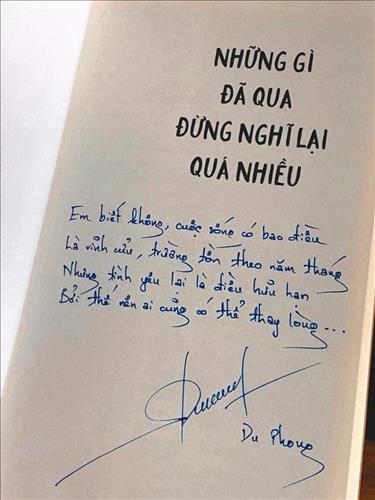 NHỮNG GÌ
ĐÃ QUA
ĐỪNG NGHĨ LẠI
QUÁ NHIỀU
Em biết không, cuộc sống có bao điều
Là vĩnh cửu, trường tồn theo năm tháng
Nhưng tình yêu lại là điều hữu hạn
Bởi thế nên ai cũng có thể thay lòng...
Du Phong